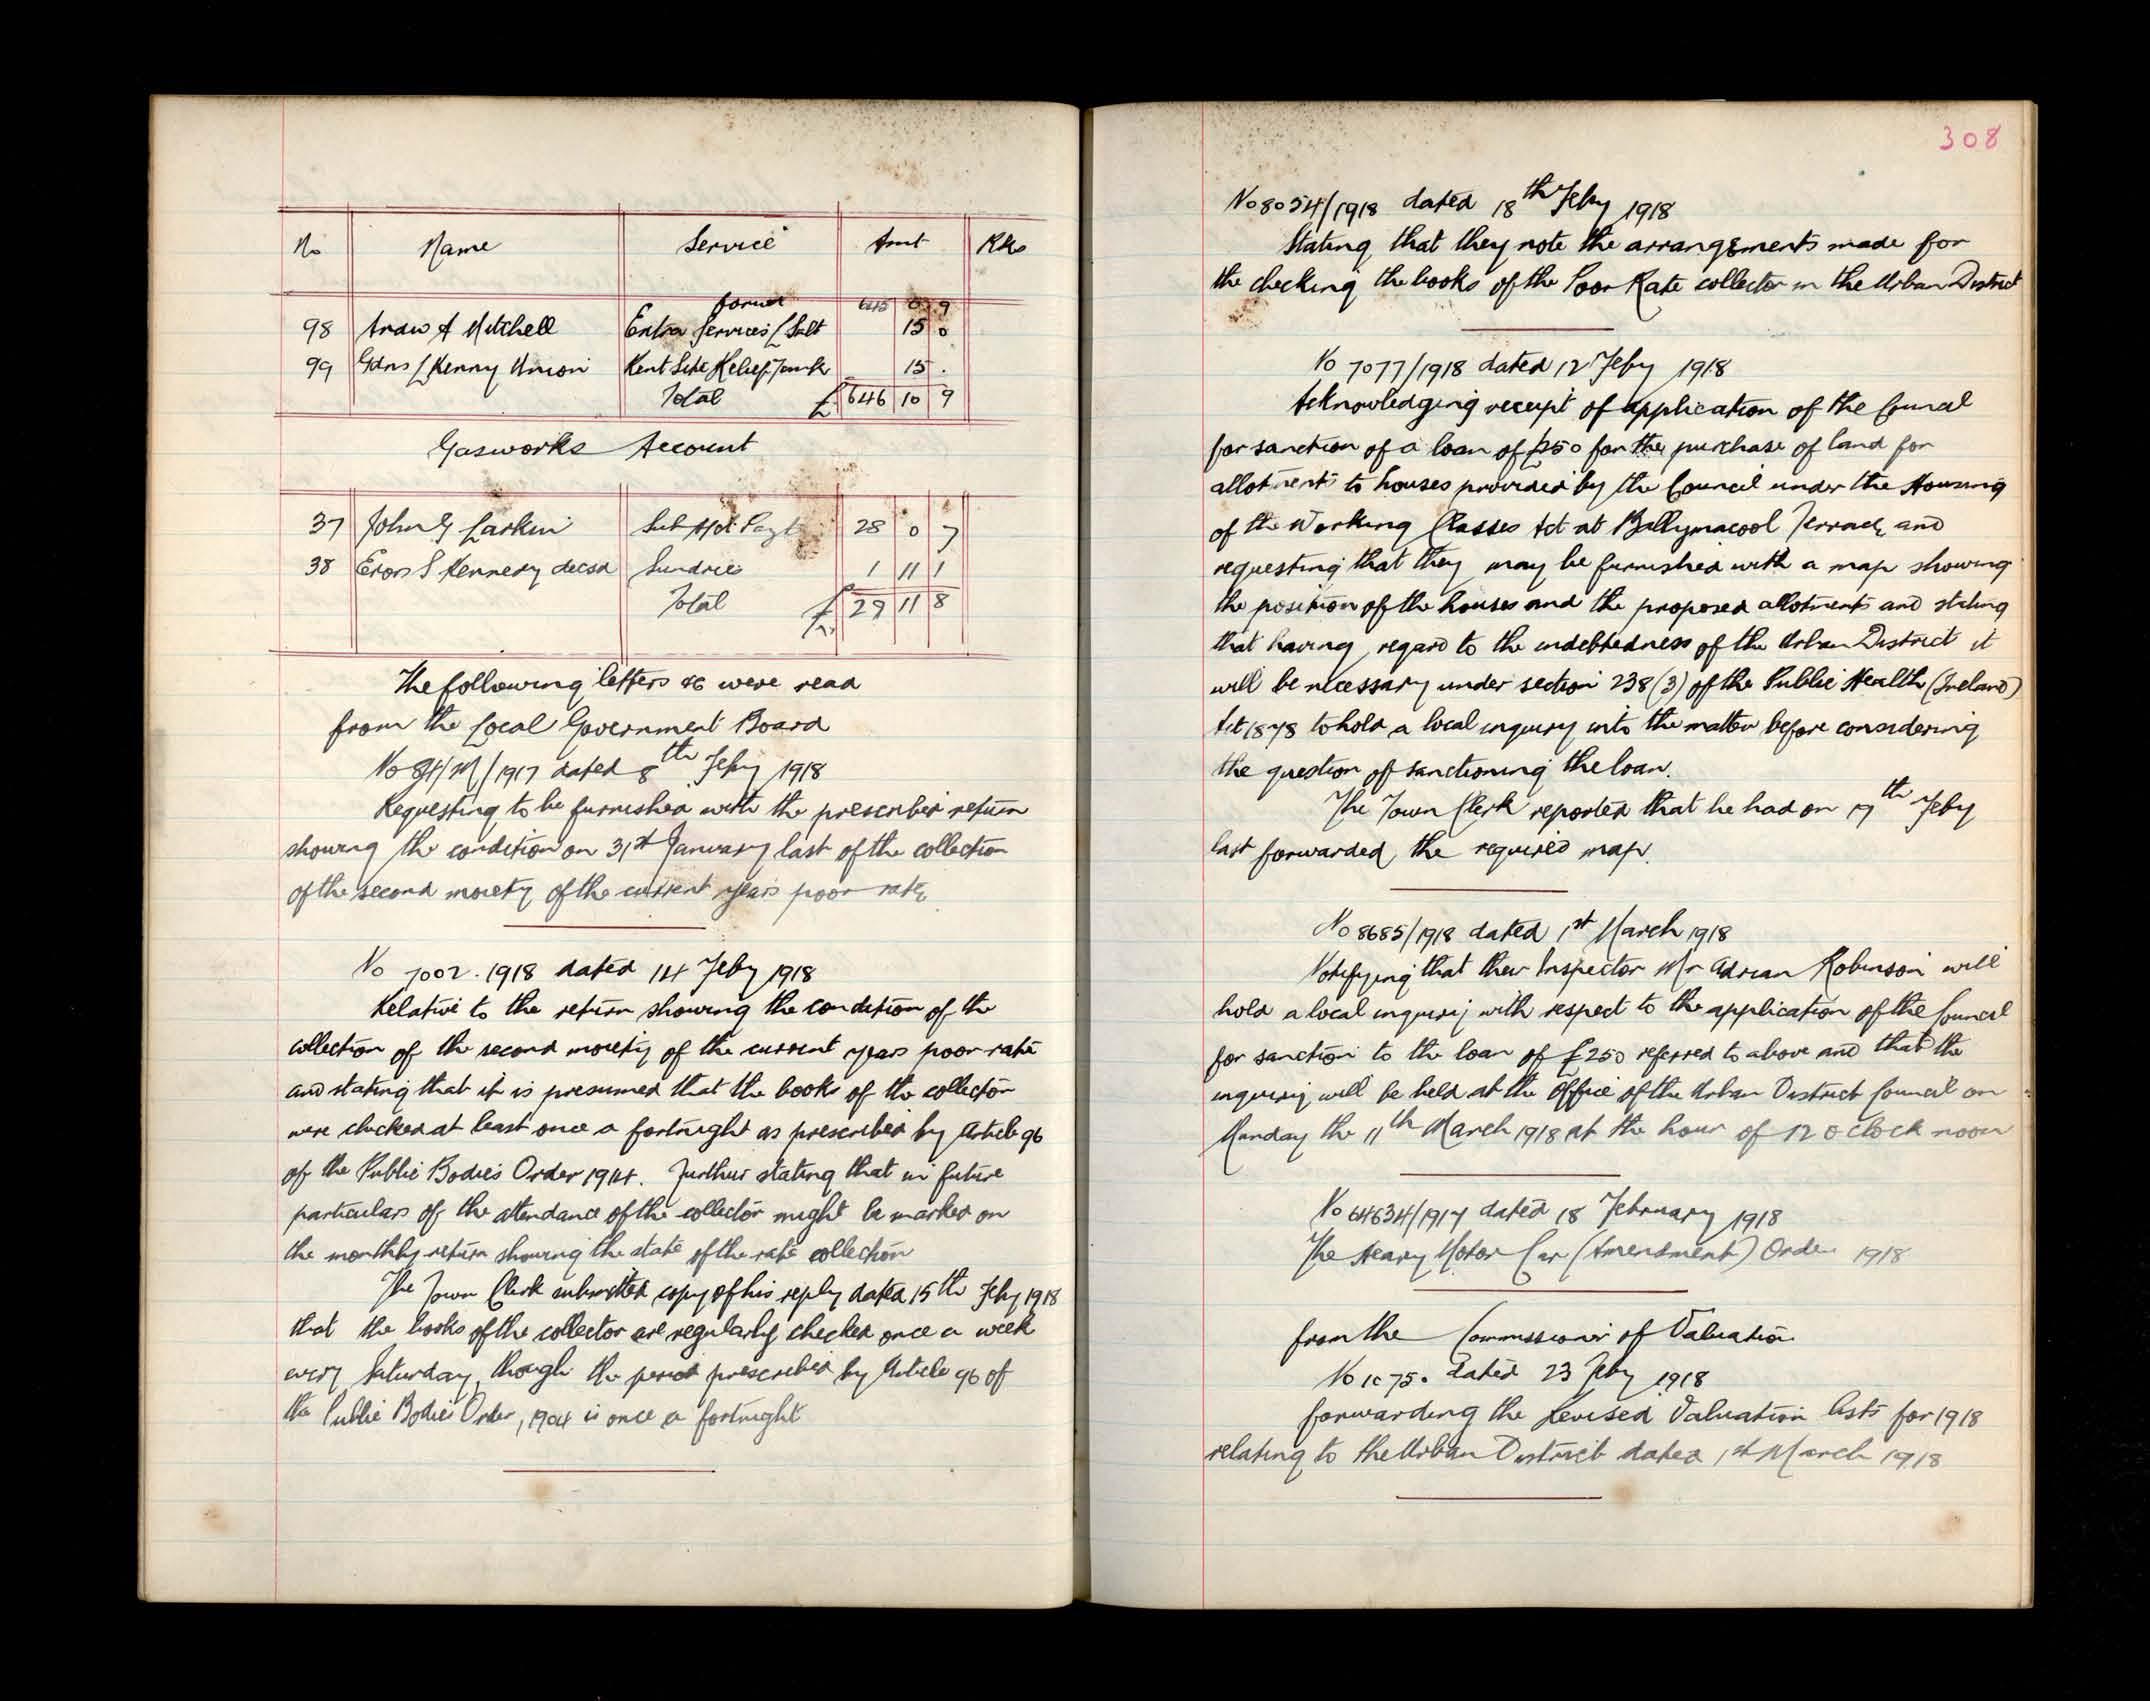 No Name Service Amt Rks
forwd 645 0 9
98 Andw A Mitchell Extra Services L Salt 15 0
99 Gdns L Kenny Union Rent Site Relief Tank 15 .
Total £ 646 10 9
Gasworks Account
37 John G Larkin Sub Acct Payt 28 0 7
38 Exors S Kennedy decsd Sundries 1 11 1
Total £ 29 11 8
The following letters &c were read
from the Local Government Board
No 84/M/1917 dated 8th Feby 1918
Requesting to be furnished with the prescribed return
showing the condition on 31st January last of the collection
of the second moiety of the current years poor rate
No 7002. 1918 dated 14 Feby 1918
Relative to the return showing the condition of the
collection of the second moiety of the current years poor rate
and stating that it is presumed that the books of the collector
were checked at least once a fortnight as prescribed by Article 96
of the Public Bodies Order 1904. Further stating that in future
particulars of the attendance of the collector might be marked on
the monthly return showing the state of the rate collection
The Town Clerk submitted copy of his reply dated 15th Feby 1918
that the books of the collector are regularly checked once a week
every Saturday, though the period prescribed by Article 96 of
the Public Bodies Order, 1904 is once a fortnight
308
No 8054/1918 dated 18th Feby 1918
Stating that they note the arrangements made for
the checking the books of the Poor Rate collector in the Urban District
No 7077/1918 dated 12 Feby 1918
Acknowledging receipt of application of the Council
for sanction of a loan of £250 for the purchase of land for
allotments to houses provided by the Council under the Housing
of the Working Classes Act at Ballymacool Terrace, and
requesting that they may be furnished with a map showing
the position of the houses and the proposed allotments and stating
that having regard to the indebtedness of the Urban District it
will be necessary under section 238(3) of the Public Health (Ireland)
Act 1878 to hold a local inquiry into the matter before considering
the question of sanctioning the loan.
The Town Clerk reported that he had on 19th Feby
last forwarded the required map.
No 8685/1918 dated 1st March 1918
Notifying that their Inspector Mr Adrian Robinson will
hold a local inquiry with respect to the application of the Council
for sanction to the loan of £250 referred to above and that the
inquiry will be held at the Office of the Urban District Council on
Monday the 11th March 1918 at the hour of 12 o clock noon
No 64634/1917 dated 18 February 1918
The Heavy Motor Car (Amendment) Order 1918
from the Commissioner of Valuation
No 1075. dated 23 Feby 1918
forwarding the Revised Valuation lists for 1918
relating to the Urban District dated 1st March 1918